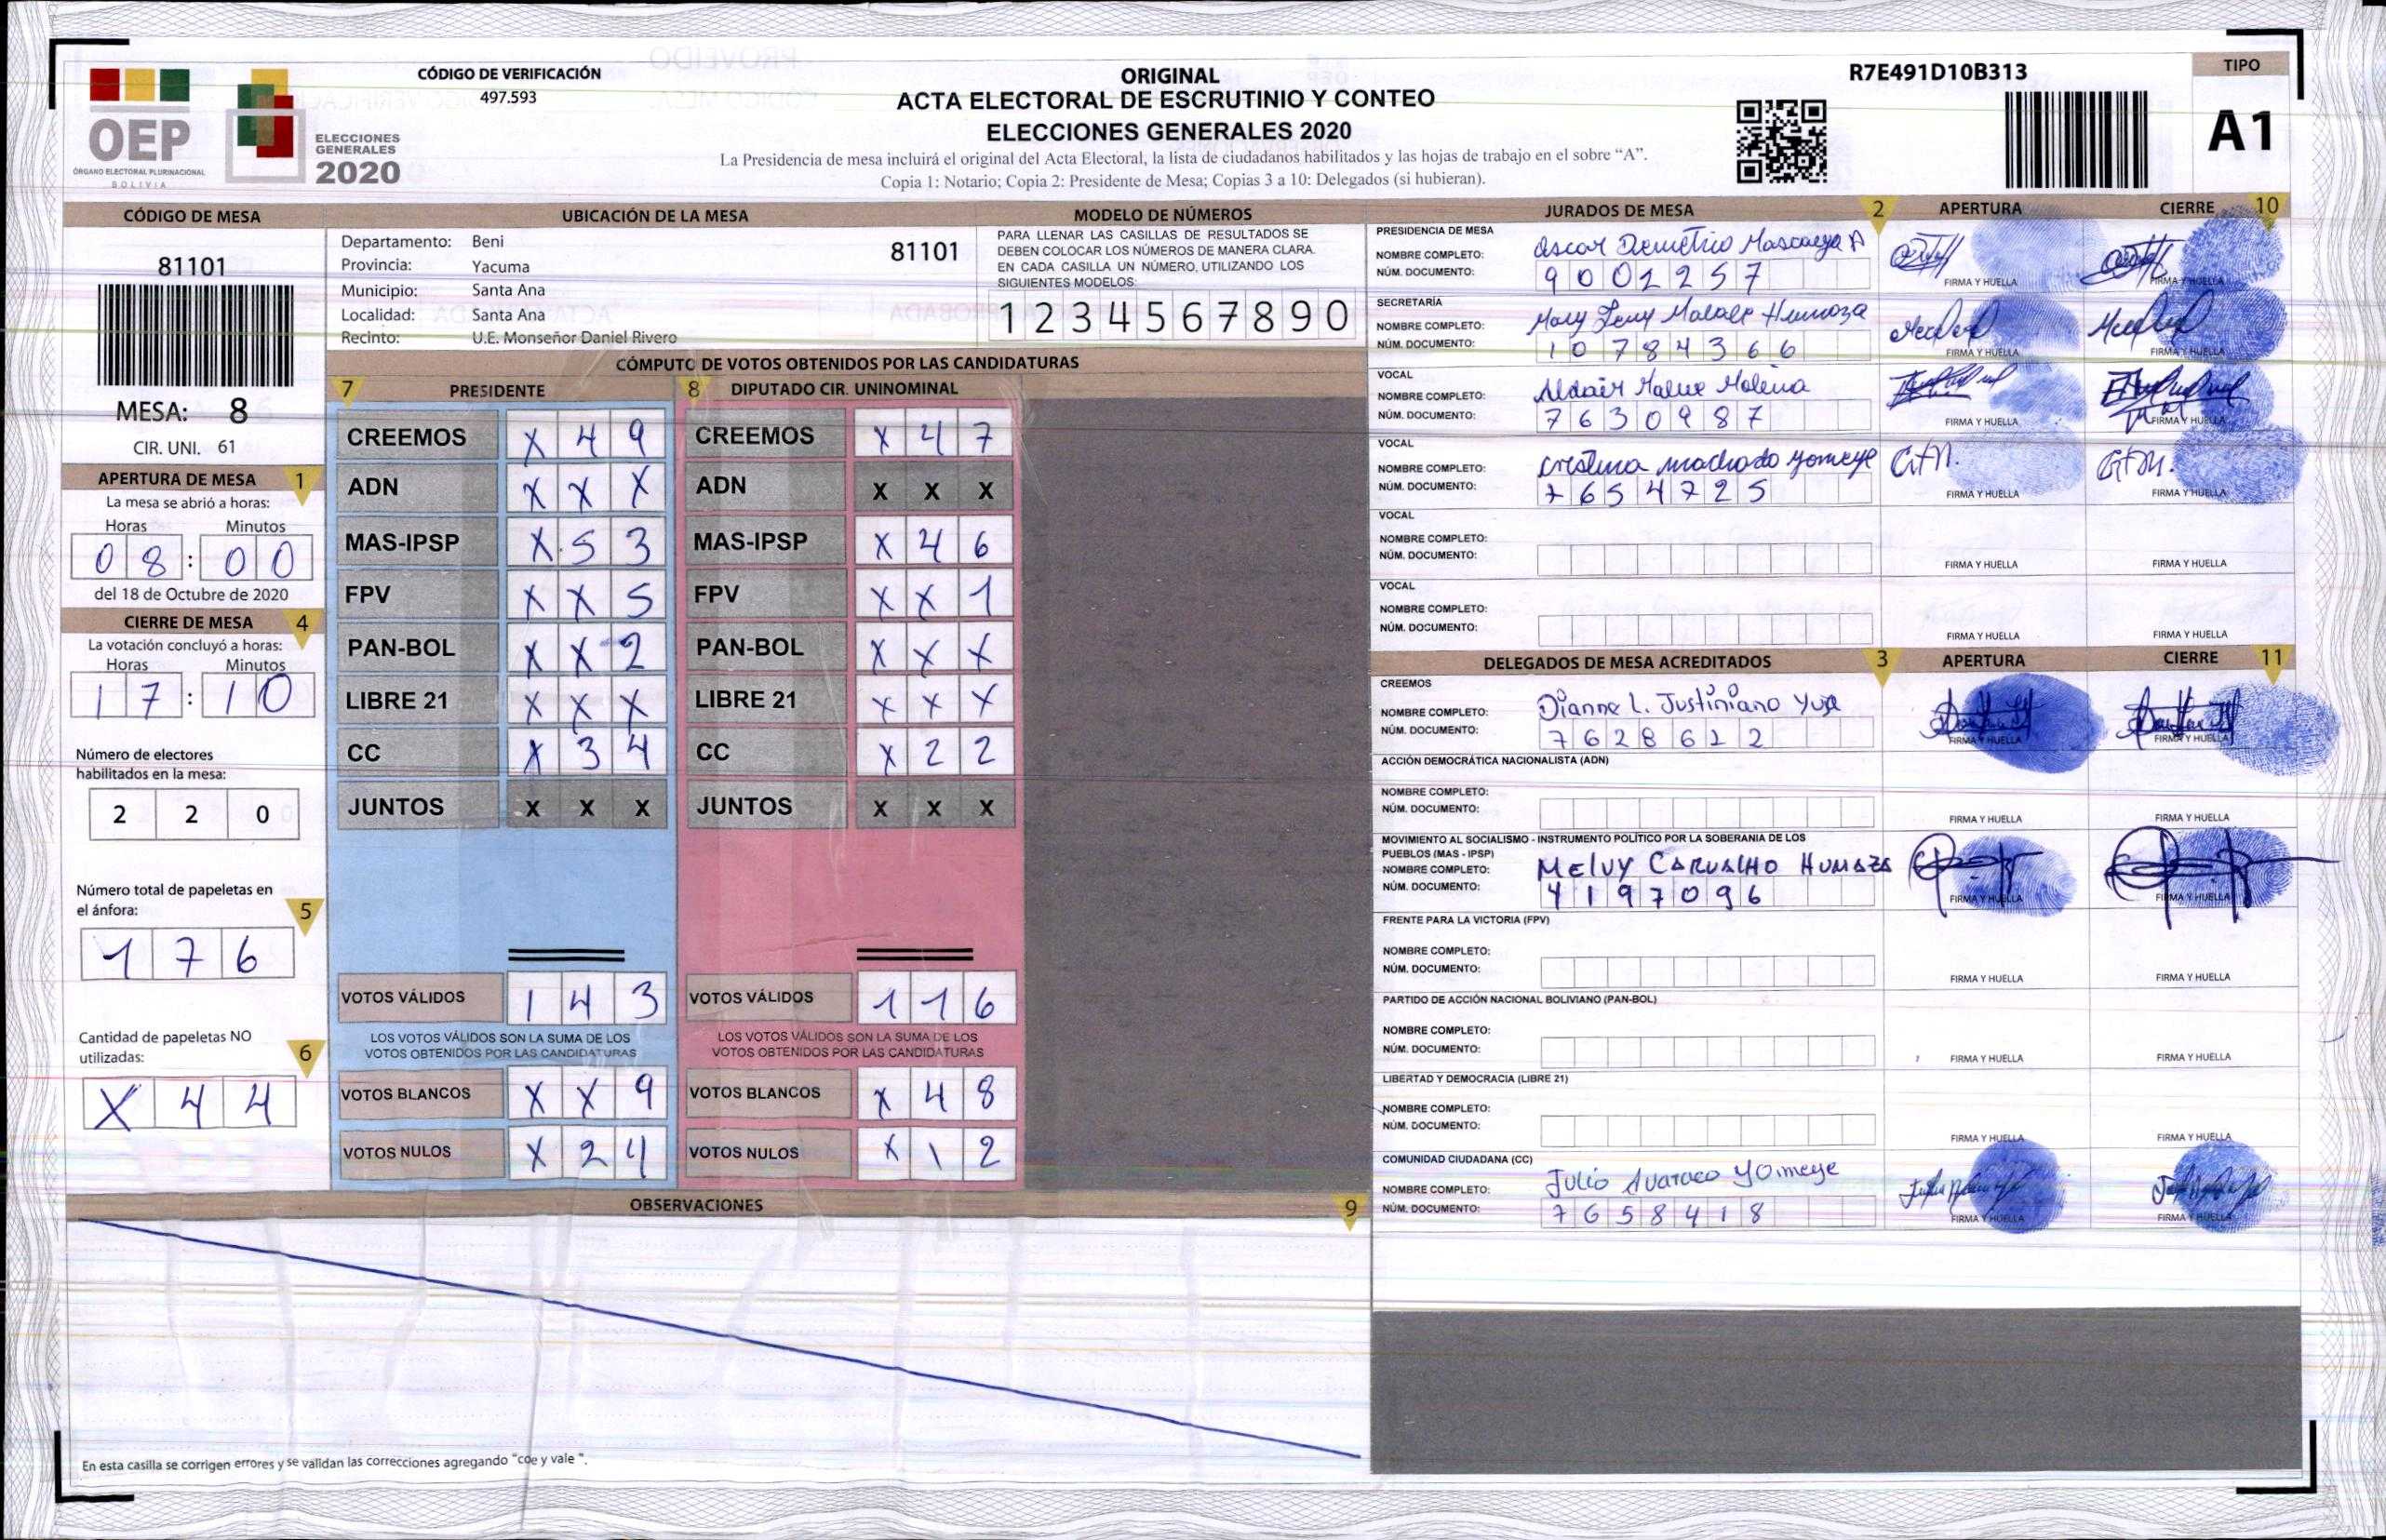 OEP
ÓRGANO ELECTORAL PLURINACIONAL
BOLIVIA
ELECCIONES
GENERALES
2020
CÓDIGO DE VERIFICACIÓN
497.593
ORIGINAL
ACTA ELECTORAL DE ESCRUTINIO Y CONTEO
ELECCIONES GENERALES 2020
La Presidencia de mesa incluirá el original del Acta Electoral, la lista de ciudadanos habilitados y las hojas de trabajo en el sobre “A”.
Copia 1: Notario; Copia 2: Presidente de Mesa; Copias 3 a 10: Delegados (si hubieran).
R7E491D10B313
TIPO
A1
CÓDIGO DE MESA
81101
MESA: 8
CIR. UNI. 61
UBICACIÓN DE LA MESA
Departamento: Beni 81101
Provincia: Yacuma
Municipio: Santa Ana
Localidad: Santa Ana
Recinto: U.E. Monseñor Daniel Rivero
MODELO DE NÚMEROS
PARA LLENAR LAS CASILLAS DE RESULTADOS SE
DEBEN COLOCAR LOS NÚMEROS DE MANERA CLARA.
EN CADA CASILLA UN NÚMERO, UTILIZANDO LOS
SIGUIENTES MODELOS:
1 2 3 4 5 6 7 8 9 0
APERTURA DE MESA 1
La mesa se abrió a horas:
Horas Minutos
0 8 : 0 0
del 18 de Octubre de 2020
CIERRE DE MESA 4
La votación concluyó a horas:
Horas Minutos
1 7 : 1 0
Número de electores
habilitados en la mesa:
2 2 0
Número total de papeletas en
el ánfora: 5
1 7 6
Cantidad de papeletas NO
utilizadas: 6
X 4 4
CÓMPUTO DE VOTOS OBTENIDOS POR LAS CANDIDATURAS
7 PRESIDENTE
CREEMOS X 4 9
ADN X X X
MAS-IPSP X 5 3
FPV X X 5
PAN-BOL X X 2
LIBRE 21 X X X
CC X 3 4
JUNTOS X X X
VOTOS VÁLIDOS 1 4 3
LOS VOTOS VÁLIDOS SON LA SUMA DE LOS
VOTOS OBTENIDOS POR LAS CANDIDATURAS
VOTOS BLANCOS X X 9
VOTOS NULOS X 2 4
8 DIPUTADO CIR. UNINOMINAL
CREEMOS X 4 7
ADN X X X
MAS-IPSP X 4 6
FPV X X 1
PAN-BOL X X X
LIBRE 21 X X X
CC X 2 2
JUNTOS X X X
VOTOS VÁLIDOS 1 1 6
LOS VOTOS VÁLIDOS SON LA SUMA DE LOS
VOTOS OBTENIDOS POR LAS CANDIDATURAS
VOTOS BLANCOS X 4 8
VOTOS NULOS X 1 2
OBSERVACIONES 9
En esta casilla se corrigen errores y se validan las correcciones agregando "coe y vale ".
JURADOS DE MESA 2 APERTURA CIERRE 10
PRESIDENCIA DE MESA
NOMBRE COMPLETO: Oscar Demetrio A
NÚM. DOCUMENTO: 9 0 0 2 2 5 7
FIRMA Y HUELLA FIRMA Y HUELLA
SECRETARÍA
NOMBRE COMPLETO: Mary
NÚM. DOCUMENTO: 1 0 7 8 4 3 6 6
FIRMA Y HUELLA FIRMA Y HUELLA
VOCAL
NOMBRE COMPLETO: Aldair Molina
NÚM. DOCUMENTO: 7 6 3 0 9 8 7
FIRMA Y HUELLA FIRMA Y HUELLA
VOCAL
NOMBRE COMPLETO: Cristina machado yomeye
NÚM. DOCUMENTO: 7 6 5 4 7 2 5
FIRMA Y HUELLA FIRMA Y HUELLA
VOCAL
NOMBRE COMPLETO:
NÚM. DOCUMENTO:
FIRMA Y HUELLA FIRMA Y HUELLA
VOCAL
NOMBRE COMPLETO:
NÚM. DOCUMENTO:
FIRMA Y HUELLA FIRMA Y HUELLA
DELEGADOS DE MESA ACREDITADOS 3 APERTURA CIERRE 11
CREEMOS
NOMBRE COMPLETO: Dianne L. Justiniano Yuja
NÚM. DOCUMENTO: 7 6 2 8 6 2 2
FIRMA Y HUELLA FIRMA Y HUELLA
ACCIÓN DEMOCRÁTICA NACIONALISTA (ADN)
NOMBRE COMPLETO:
NÚM. DOCUMENTO:
FIRMA Y HUELLA FIRMA Y HUELLA
MOVIMIENTO AL SOCIALISMO - INSTRUMENTO POLÍTICO POR LA SOBERANIA DE LOS
PUEBLOS (MAS - IPSP)
NOMBRE COMPLETO: MElVY CARVALHO HUMAZA
NÚM. DOCUMENTO: 4 1 9 7 0 9 6
FIRMA Y HUELLA FIRMA Y HUELLA
FRENTE PARA LA VICTORIA (FPV)
NOMBRE COMPLETO:
NÚM. DOCUMENTO:
FIRMA Y HUELLA FIRMA Y HUELLA
PARTIDO DE ACCIÓN NACIONAL BOLIVIANO (PAN-BOL)
NOMBRE COMPLETO:
NÚM. DOCUMENTO:
FIRMA Y HUELLA FIRMA Y HUELLA
LIBERTAD Y DEMOCRACIA (LIBRE 21)
NOMBRE COMPLETO:
NÚM. DOCUMENTO:
FIRMA Y HUELLA FIRMA Y HUELLA
COMUNIDAD CIUDADANA (CC)
NOMBRE COMPLETO: Julio yomeye
NÚM. DOCUMENTO: 7 6 5 8 4 1 8
FIRMA Y HUELLA FIRMA Y HUELLA